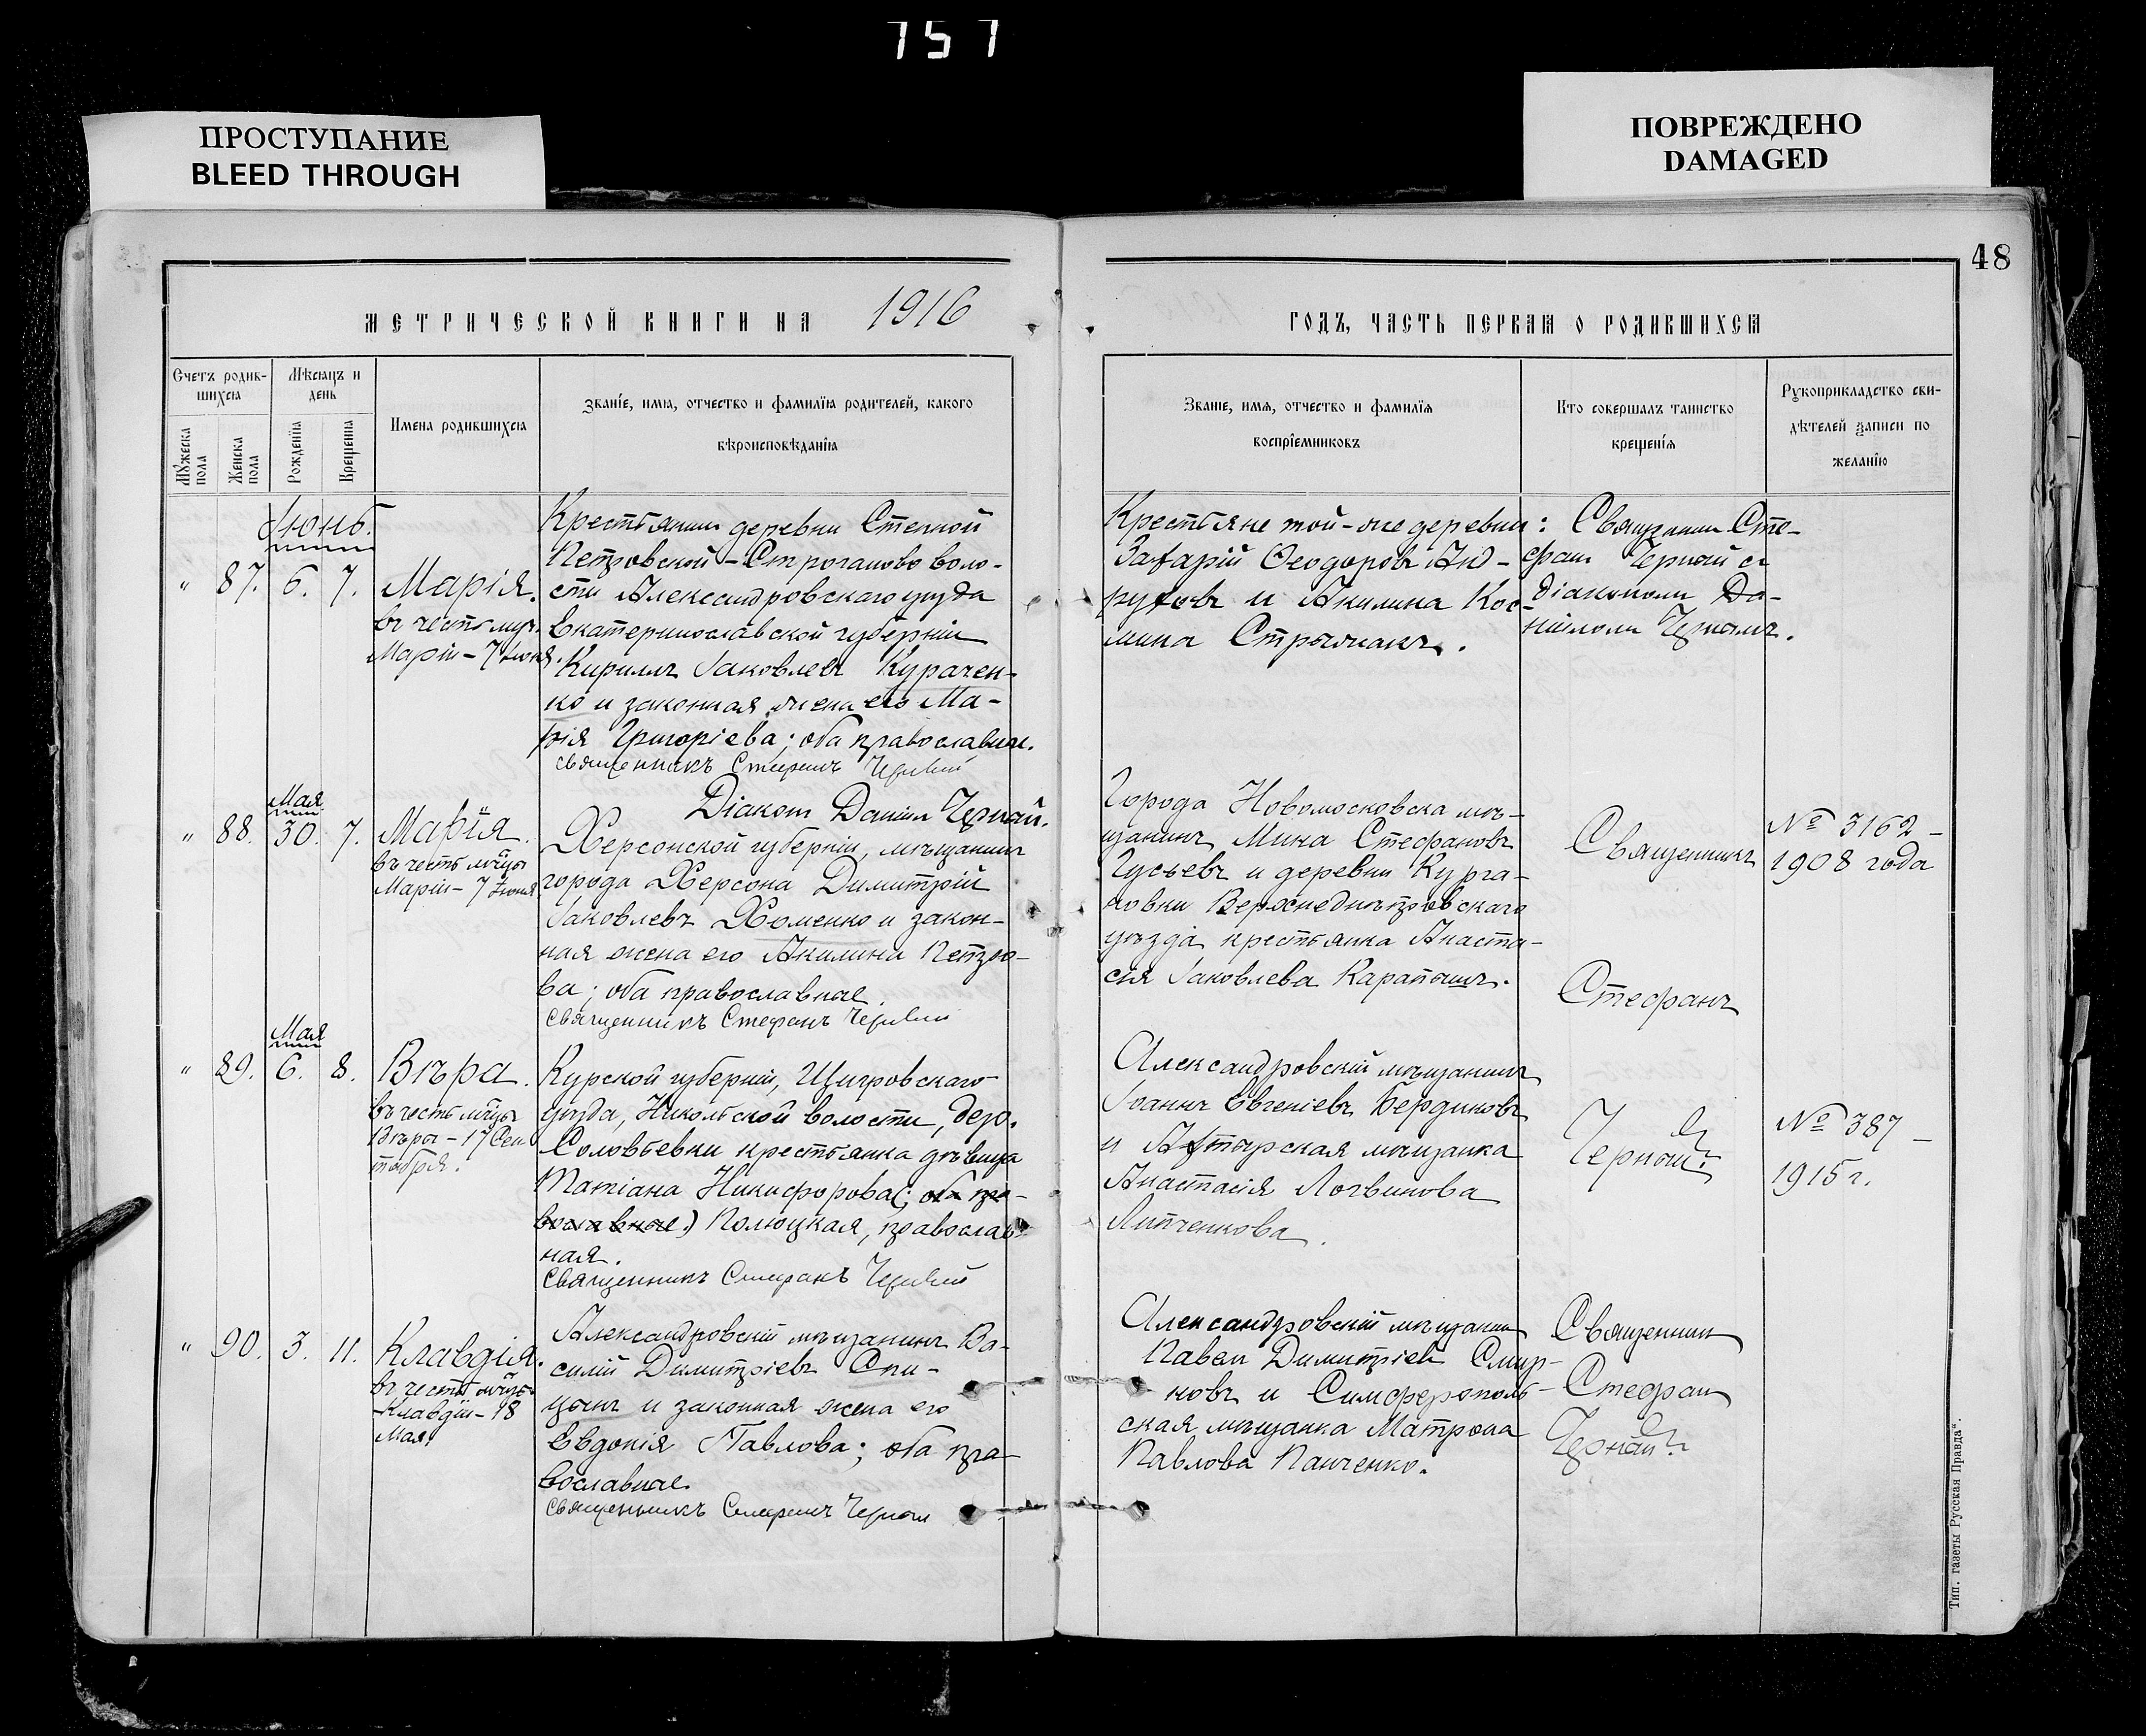 757
ПРОСТУПАНИЕ
BLEED THROUGH
ПОВРЕЖДЕНО
DAMAGED
48
МЕТРИЧЕСКОЙ КНИГИ НА 1916
ГОДЪ, ЧАСТЬ ПЕРВАЯ О РОДИВШИХСЯ
Счетъ родив-
шихся
Мѣсяцъ и
день
Мужеска
пола
Женска
пола
Рожденїя
Крещенія
Имена родившихся
Званїе, имя, отчество и фамилїя родителей, какого
вѣроисповѣданїя
Званіе, имя, отчество и фамилїя
воспрїемниковъ
Кто совершалъ таинство
крещенїя
Рукоприкладство сви-
дѣтелей записи по
желанїю
Іюнь.
" 87. 6. 7. Марія.
въ честь муч.
Маріи - 7 іюня.
Крестьянинъ деревни Степной
Петровской - Строганово воло-
сти Александровскаго уѣзда
Екатеринославской губерніи
Кириллъ Іаковлевъ Курачен-
ко и законная жена его Ма-
рія Григоріева; оба православные.
Священникъ Стефанъ Черный
Діаконъ Даніилъ Черный.
Крестьяне той-же деревни:
Захарій Ѳеодоровъ Анд-
руховъ и Акилина Кос-
мина Стрыжакъ.
Священникъ Сте-
фанъ Черный съ
діакономъ Да-
ніиломъ Чернымъ.
Мая
" 88. 30. 7. Марія.
въ честь мч̃цы
Маріи - 7 Іюня
Херсонской губерніи, мѣщанинъ
города Херсона Димитрій
Іаковлевъ Хоменко и закон-
ная жена его Акилина Петро-
ва; оба православные.
Священникъ Стефанъ Черный
Города Новомосковска мѣ-
щанинъ Мина Стефановъ
Гусьевъ и деревни Курга-
новки Верхнеднѣпровскаго
уѣзда крестьянка Анаста-
сія Іаковлева Карапышъ.
Священникъ
Стефанъ
Черный.
№ 3162 -
1908 года
Мая
" 89. 6. 8. Вѣра.
въ честь мч̃цы
Вѣры - 17 Сен-
тября.
Курской губерніи, Щигровскаго
уѣзда, Никольской волости, дер.
Соловьевки крестьянка дѣвица
Татіана Никифорова (; оба пра-
вославные.) Полюцкая, православ-
ная.
Священникъ Стефанъ Черный
Александровскій мѣщанинъ
Іоаннъ Евгеніевъ Бердиковъ
и Ахтырская мѣщанка
Анастасія Логвинова
Липченкова.
№ 387 -
1915 г.
" 90. 3. 11. Клавдія.
въ честь мч̃цы
Клавдіи - 18
Мая.
Александровскій мѣщанинъ Ва-
силій Димитріевъ Спи-
цынъ и законная жена его
Евдокія Павлова; оба пра-
вославные.
Священникъ Стефанъ Черный
Александровскій мѣщанинъ
Павелъ Димитріевъ Смир-
новъ и Симферополь-
ская мѣщанка Матрона
Павлова Панченко.
Священникъ
Стефанъ
Черный.
Тип. газеты „Русская Правда“.